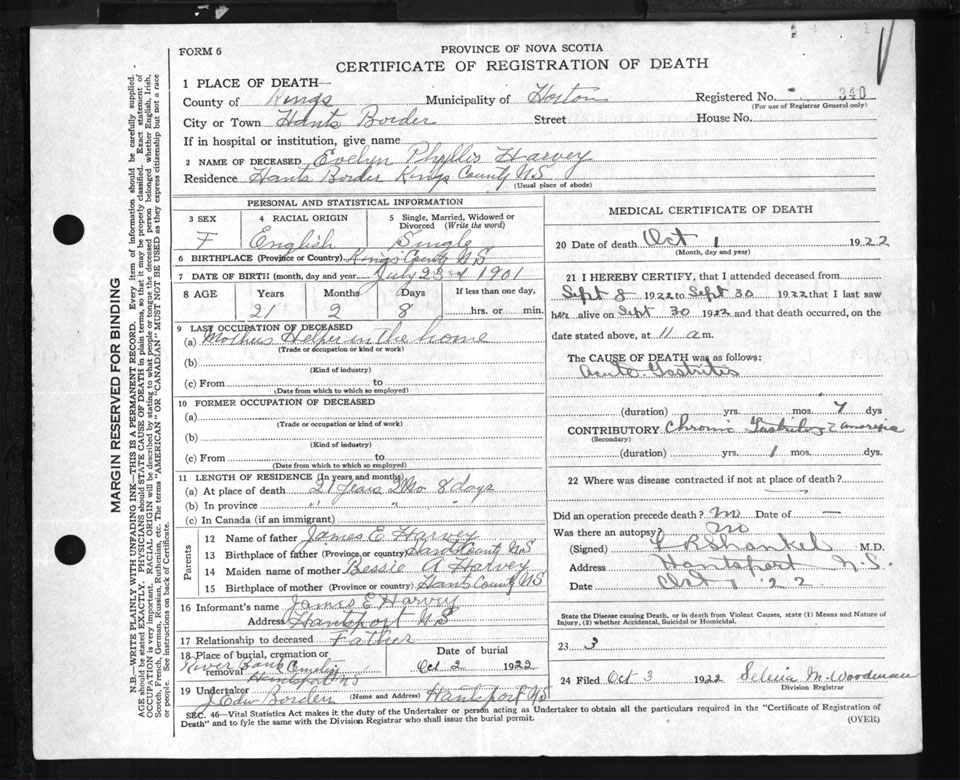 FORM 6
PROVINCE OF NOVA SCOTIA
CERTIFICATE OF REGISTRATION OF DEATH
1 PLACE OF DEATH—
County of Kings Municipality of Horton Registered No. 340
(For use of Registrar General only)
City or Town Hants Border Street House No.
If in hospital or institution, give name
2 NAME OF DECEASED Evelyn Phyllis Harvey
Residence Hants Border Kings County NS
(Usual place of abode)
PERSONAL AND STATISTICAL INFORMATION
3 SEX 4 RACIAL ORIGIN 5 Single, Married, Widowed or Divorced (Write the word)
F English Single
6 BIRTHPLACE (Province or Country) Kings County NS
7 DATE OF BIRTH (month, day and year) July 23rd 1901
8 AGE Years Months Days If less than one day,
21 2 8 hrs. or min.
9 LAST OCCUPATION OF DECEASED
(a) Mothers Helper in the home
(Trade or occupation or kind or work)
(b)
(Kind of industry)
(c) From to
(Date from which to which so employed)
10 FORMER OCCUPATION OF DECEASED
(a)
(Trade or occupation or kind of work)
(b)
(Kind of industry)
(c) From to
(Date from which to which so employed)
11 LENGTH OF RESIDENCE (In years and months)
(a) At place of death 21 Years 2 Mo 8 days
(b) In province " " "
(c) In Canada (if an immigrant)
Parents
12 Name of father James E Harvey
13 Birthplace of father (Province or country) Hants County NS
14 Maiden name of mother Bessie A Harvey
15 Birthplace of mother (Province or country) Hants County NS
16 Informant's name James E Harvey
Address Hantsport NS
17 Relationship to deceased Father
18 Place of burial, cremation or removal Date of burial
River Bank Hantsport NS Oct 2 1922
19 Undertaker J Edw Borden (Name and Address) Hantsport NS
MEDICAL CERTIFICATE OF DEATH
20 Date of death Oct 1 1922
(Month, day and year)
21 I HEREBY CERTIFY, that I attended deceased from
Sept 8 1922 to Sept 30 1922 that I last saw
her alive on Sept 30 1922 and that death occurred, on the
date stated above, at 11 a m.
The CAUSE OF DEATH was as follows:
Acute Gastritis
(duration) yrs. mos. 7 dys
CONTRIBUTORY Chronic Gastritis
(Secondary)
(duration) 1 yrs. mos. dys.
22 Where was disease contracted if not at place of death?
Did an operation precede death? no Date of —
Was there an autopsy? no
(Signed) Shankel M.D.
Address Hantsport N.S.
Date Oct 1 '22
State the Disease causing Death, or in death from Violent Causes, state (1) Means and Nature of
Injury, (2) whether Accidental, Suicidal or Homicidal.
23 3
24 Filed Oct 3 1922 Selena M. Woodman
Division Registrar
SEC. 46—Vital Statistics Act makes it the duty of the Undertaker or person acting as Undertaker to obtain all the particulars required in the "Certificate of Registration of
Death" and to fyle the same with the Division Registrar who shall issue the burial permit. (OVER)
MARGIN RESERVED FOR BINDING
N.B.—WRITE PLAINLY WITH UNFADING INK—THIS IS A PERMANENT RECORD. Every item of information should be carefully supplied.
AGE should be stated EXACTLY. PHYSICIANS should STATE CAUSE OF DEATH in plain terms, so that it may be properly classified. Exact statement of
OCCUPATION is very important. RACIAL ORIGIN will be described by stating to what people or tongue the deceased person belonged whether English, Irish,
Scotch, French, German, Russian, Ruthenian, etc. The terms "AMERICAN" OR "CANADIAN" MUST NOT BE USED as they express citizenship but not a race
or people. See instructions on back of Certificate.